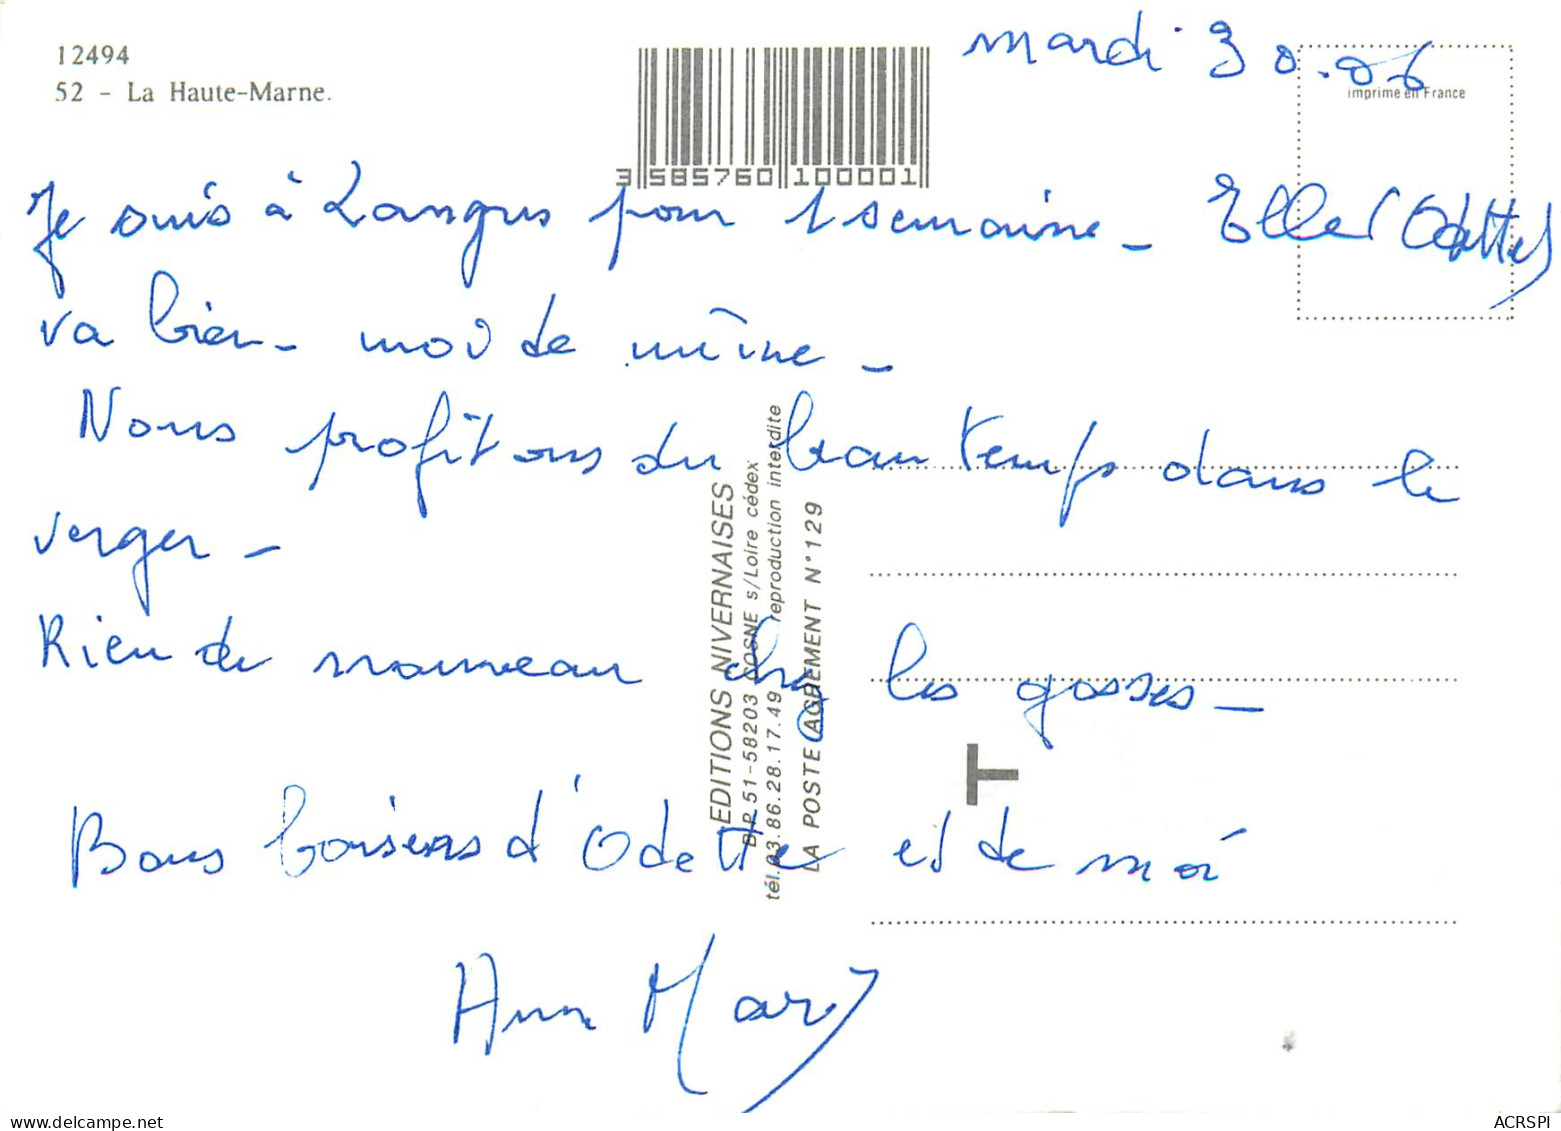 12494
52 - La Haute-Marne.
imprimé en France
3 585760 100001
mardi 30.06
Je suis à Langres pour 1 semaine - Elle (Odette)
va bien - moi de même -
Nous profitons du beau temps dans le
verger -
Rien de nouveau chez les gosses -
Bons baisers d'Odette et de moi
Ann Mary
EDITIONS NIVERNAISES
B.P. 51-58203 COSNE s/Loire cédex
tél. 03.86.28.17.49 reproduction interdite
LA POSTE AGREMENT N°129
T
delcampe.net
ACRSPI